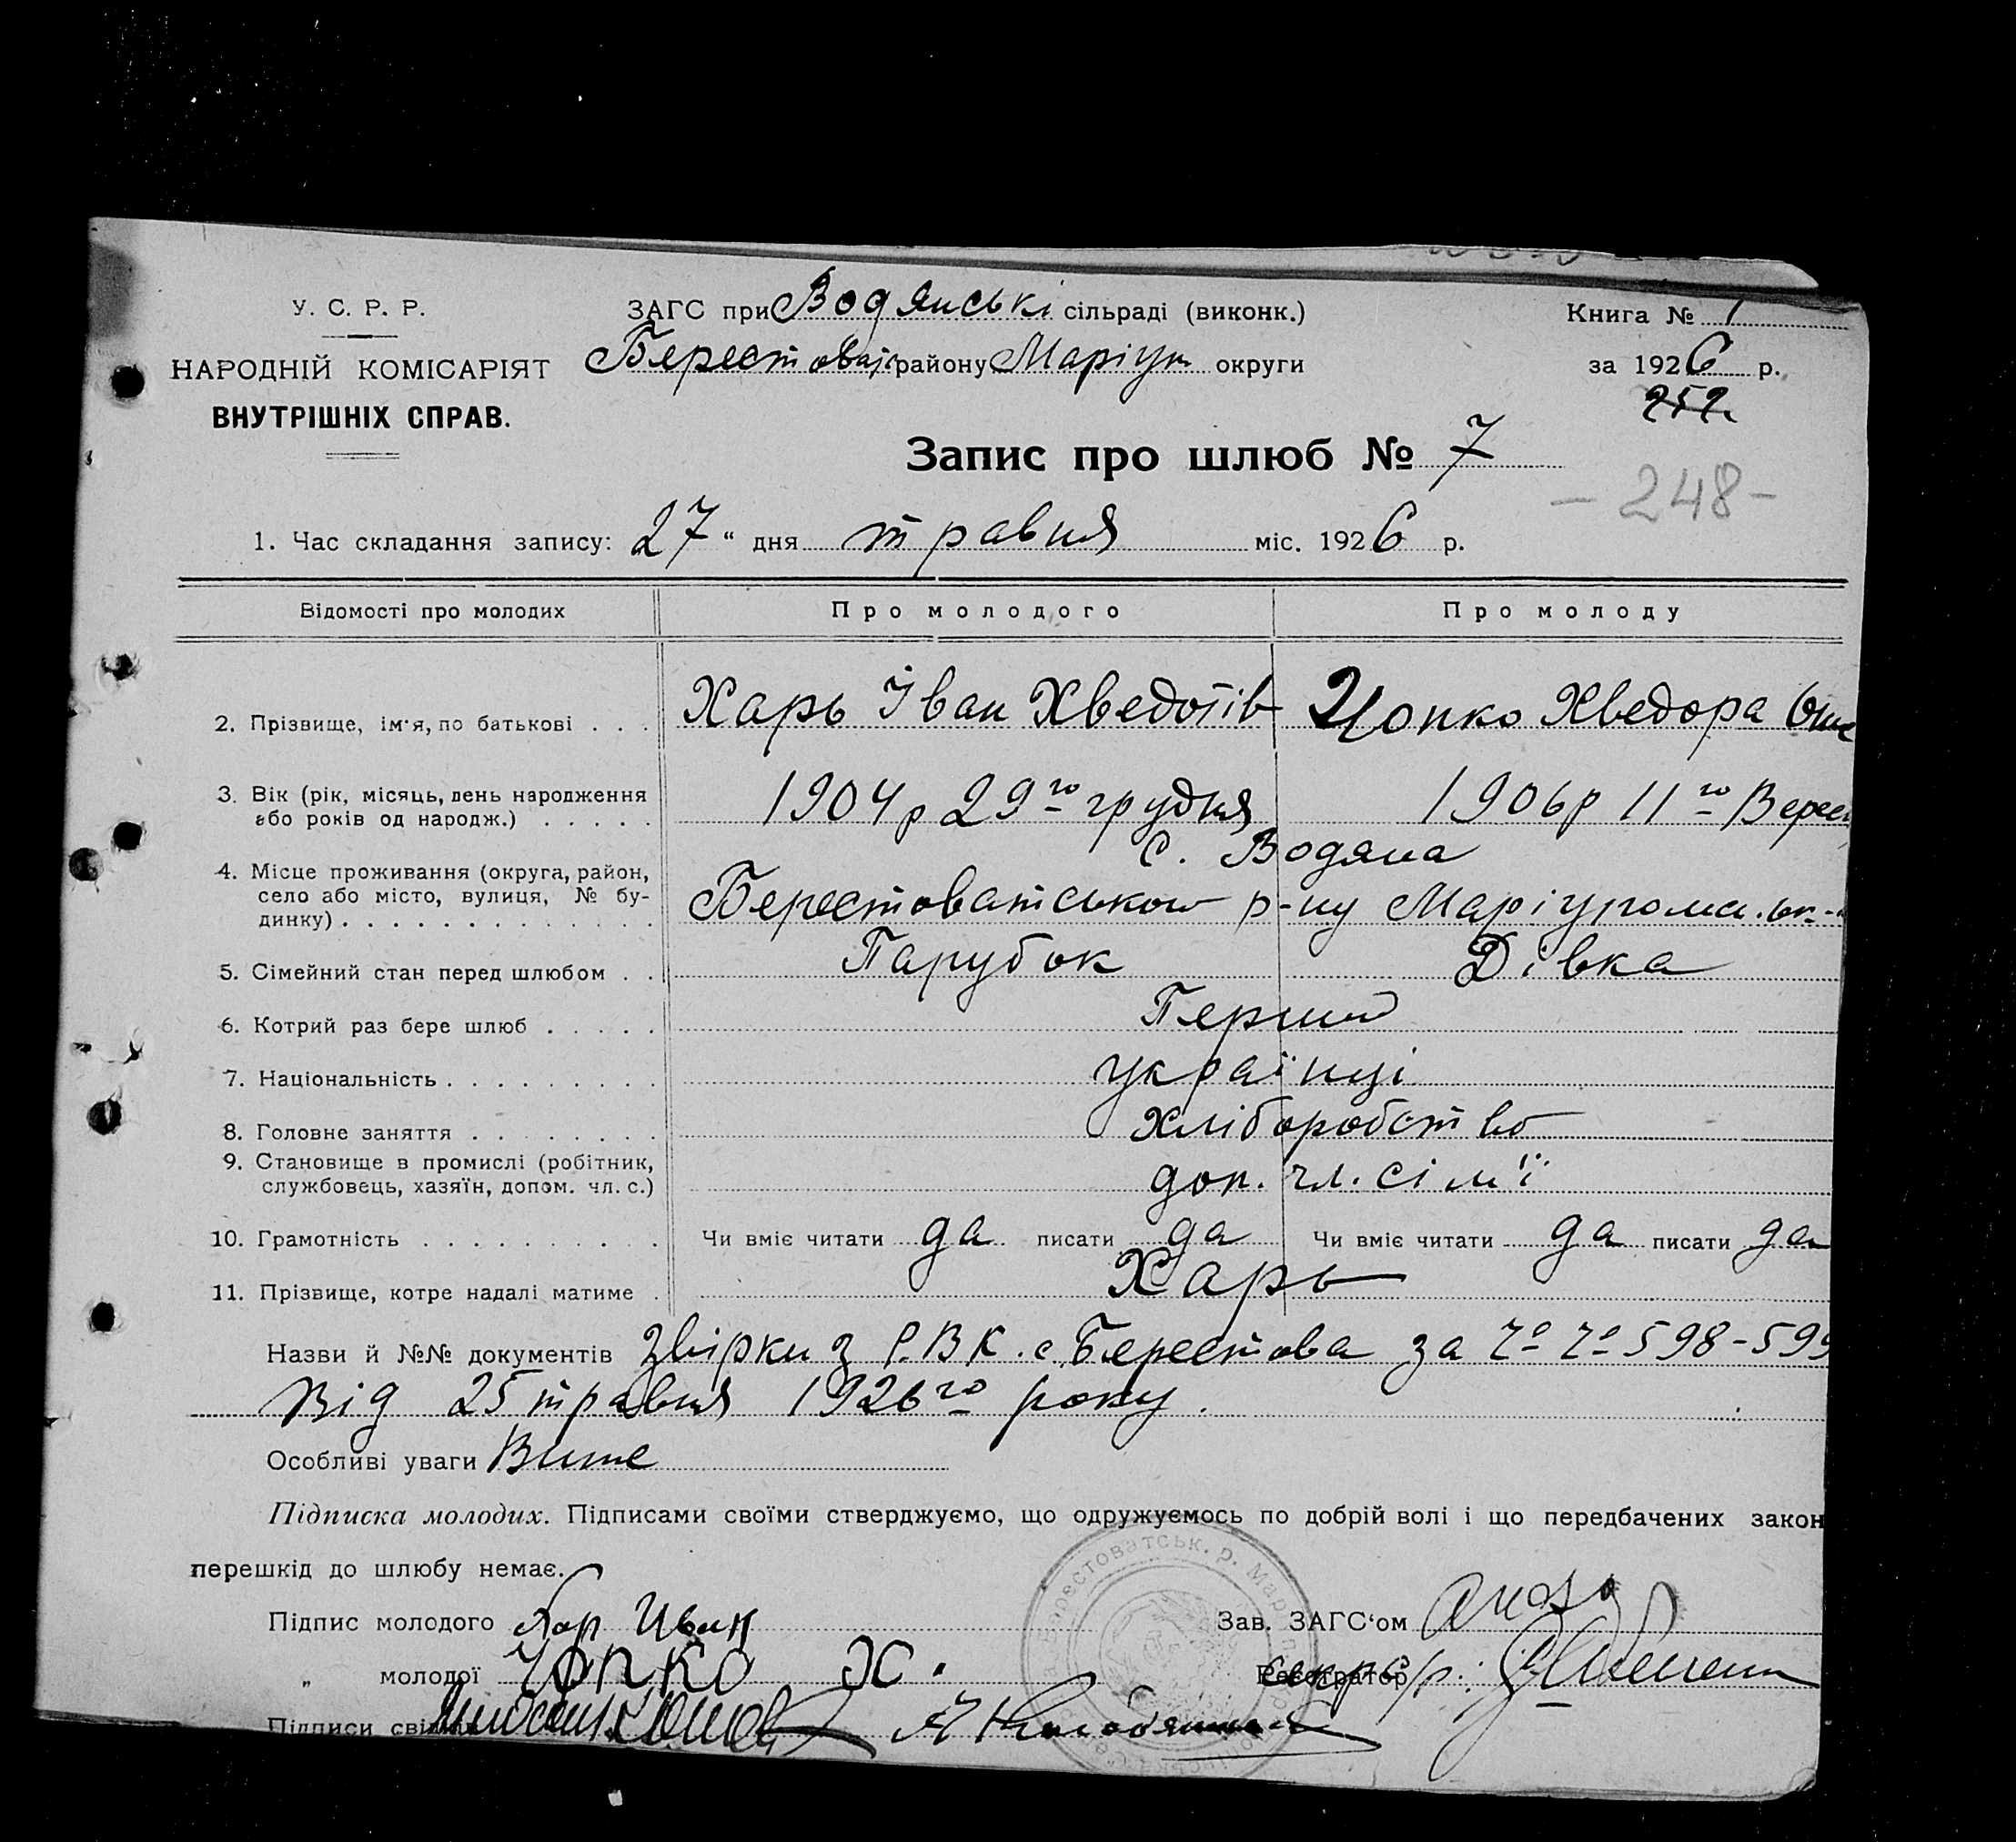 У. С. Р. Р.
НАРОДНІЙ КОМІСАРІЯТ
ВНУТРІШНІХ СПРАВ.
ЗАГС при Водянські сільраді (виконк.)
Берестоват району Маріуп округи
Книга № 1
за 1926 р.
252
Запис про шлюб № 7
- 248 -
1. Час складання запису: 27 “ дня травня міс. 1926 р.
Відомості про молодих Про молодого Про молоду
2. Прізвище, ім'я, по батькові . . . Харь Іван Хведотів Цопко Хведора
3. Вік (рік, місяць, день народження 1904 р 29го грудня 1906 р 11го Верес
або років од народж.) . . . . .
с. Водяна
4. Місце проживання (округа, район,
село або місто, вулиця, № бу- Берестоватського р-ну
динку) . . . . . . . . . . . . . .
5. Сімейний стан перед шлюбом . . Парубок Дівка
6. Котрий раз бере шлюб . . . . . Перший
7. Національність . . . . . . . . . українці
8. Головне заняття . . . . . . . . хліборобство
9. Становище в промислі (робітник,
службовець, хазяїн, допом. чл. с.) доп. чл. сім'ї
10. Грамотність . . . . . . . . . . Чи вміє читати да писати да Чи вміє читати да писати да
11. Прізвище, котре надалі матиме . Харь
Назви й №№ документів Звірки з Р.В.К. с. Берестова за 598-599
Від 25 травня 1926го року.
Особливі уваги
Підписка молодих. Підписами своїми стверджуємо, що одружуємось по добрій волі і що передбачених закон
перешкід до шлюбу немає.
Підпис молодого Хар Иван Зав. ЗАГС‘ом
„ молодої Цопко Х. Реєстратор секр с/р:
Підписи свідків
Берестоватськ. р.